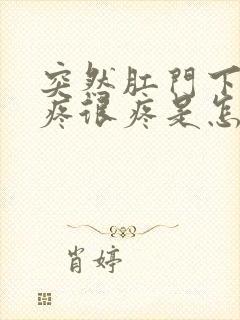 突然肛門下
疼很疼是怎
肖婷